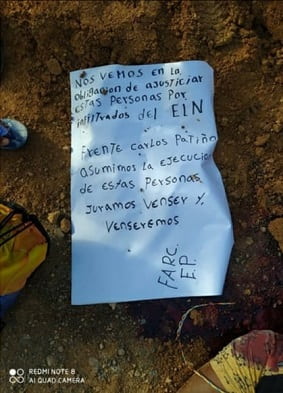 NOS VEMOS EN LA
OBLIGACION DE AJUSTICIAR
ESTAS PERSONAS POR
INFILTRADOS DEL ELN
FRENTE CARLOS PATIÑO
ASUMIMOS LA EJECUCIO
DE ESTAS PERSONAS
JURAMOS VENSER Y
VENSEREMOS
FARC.
E.P.
REDMI NOTE 8
AI QUAD CAMERA